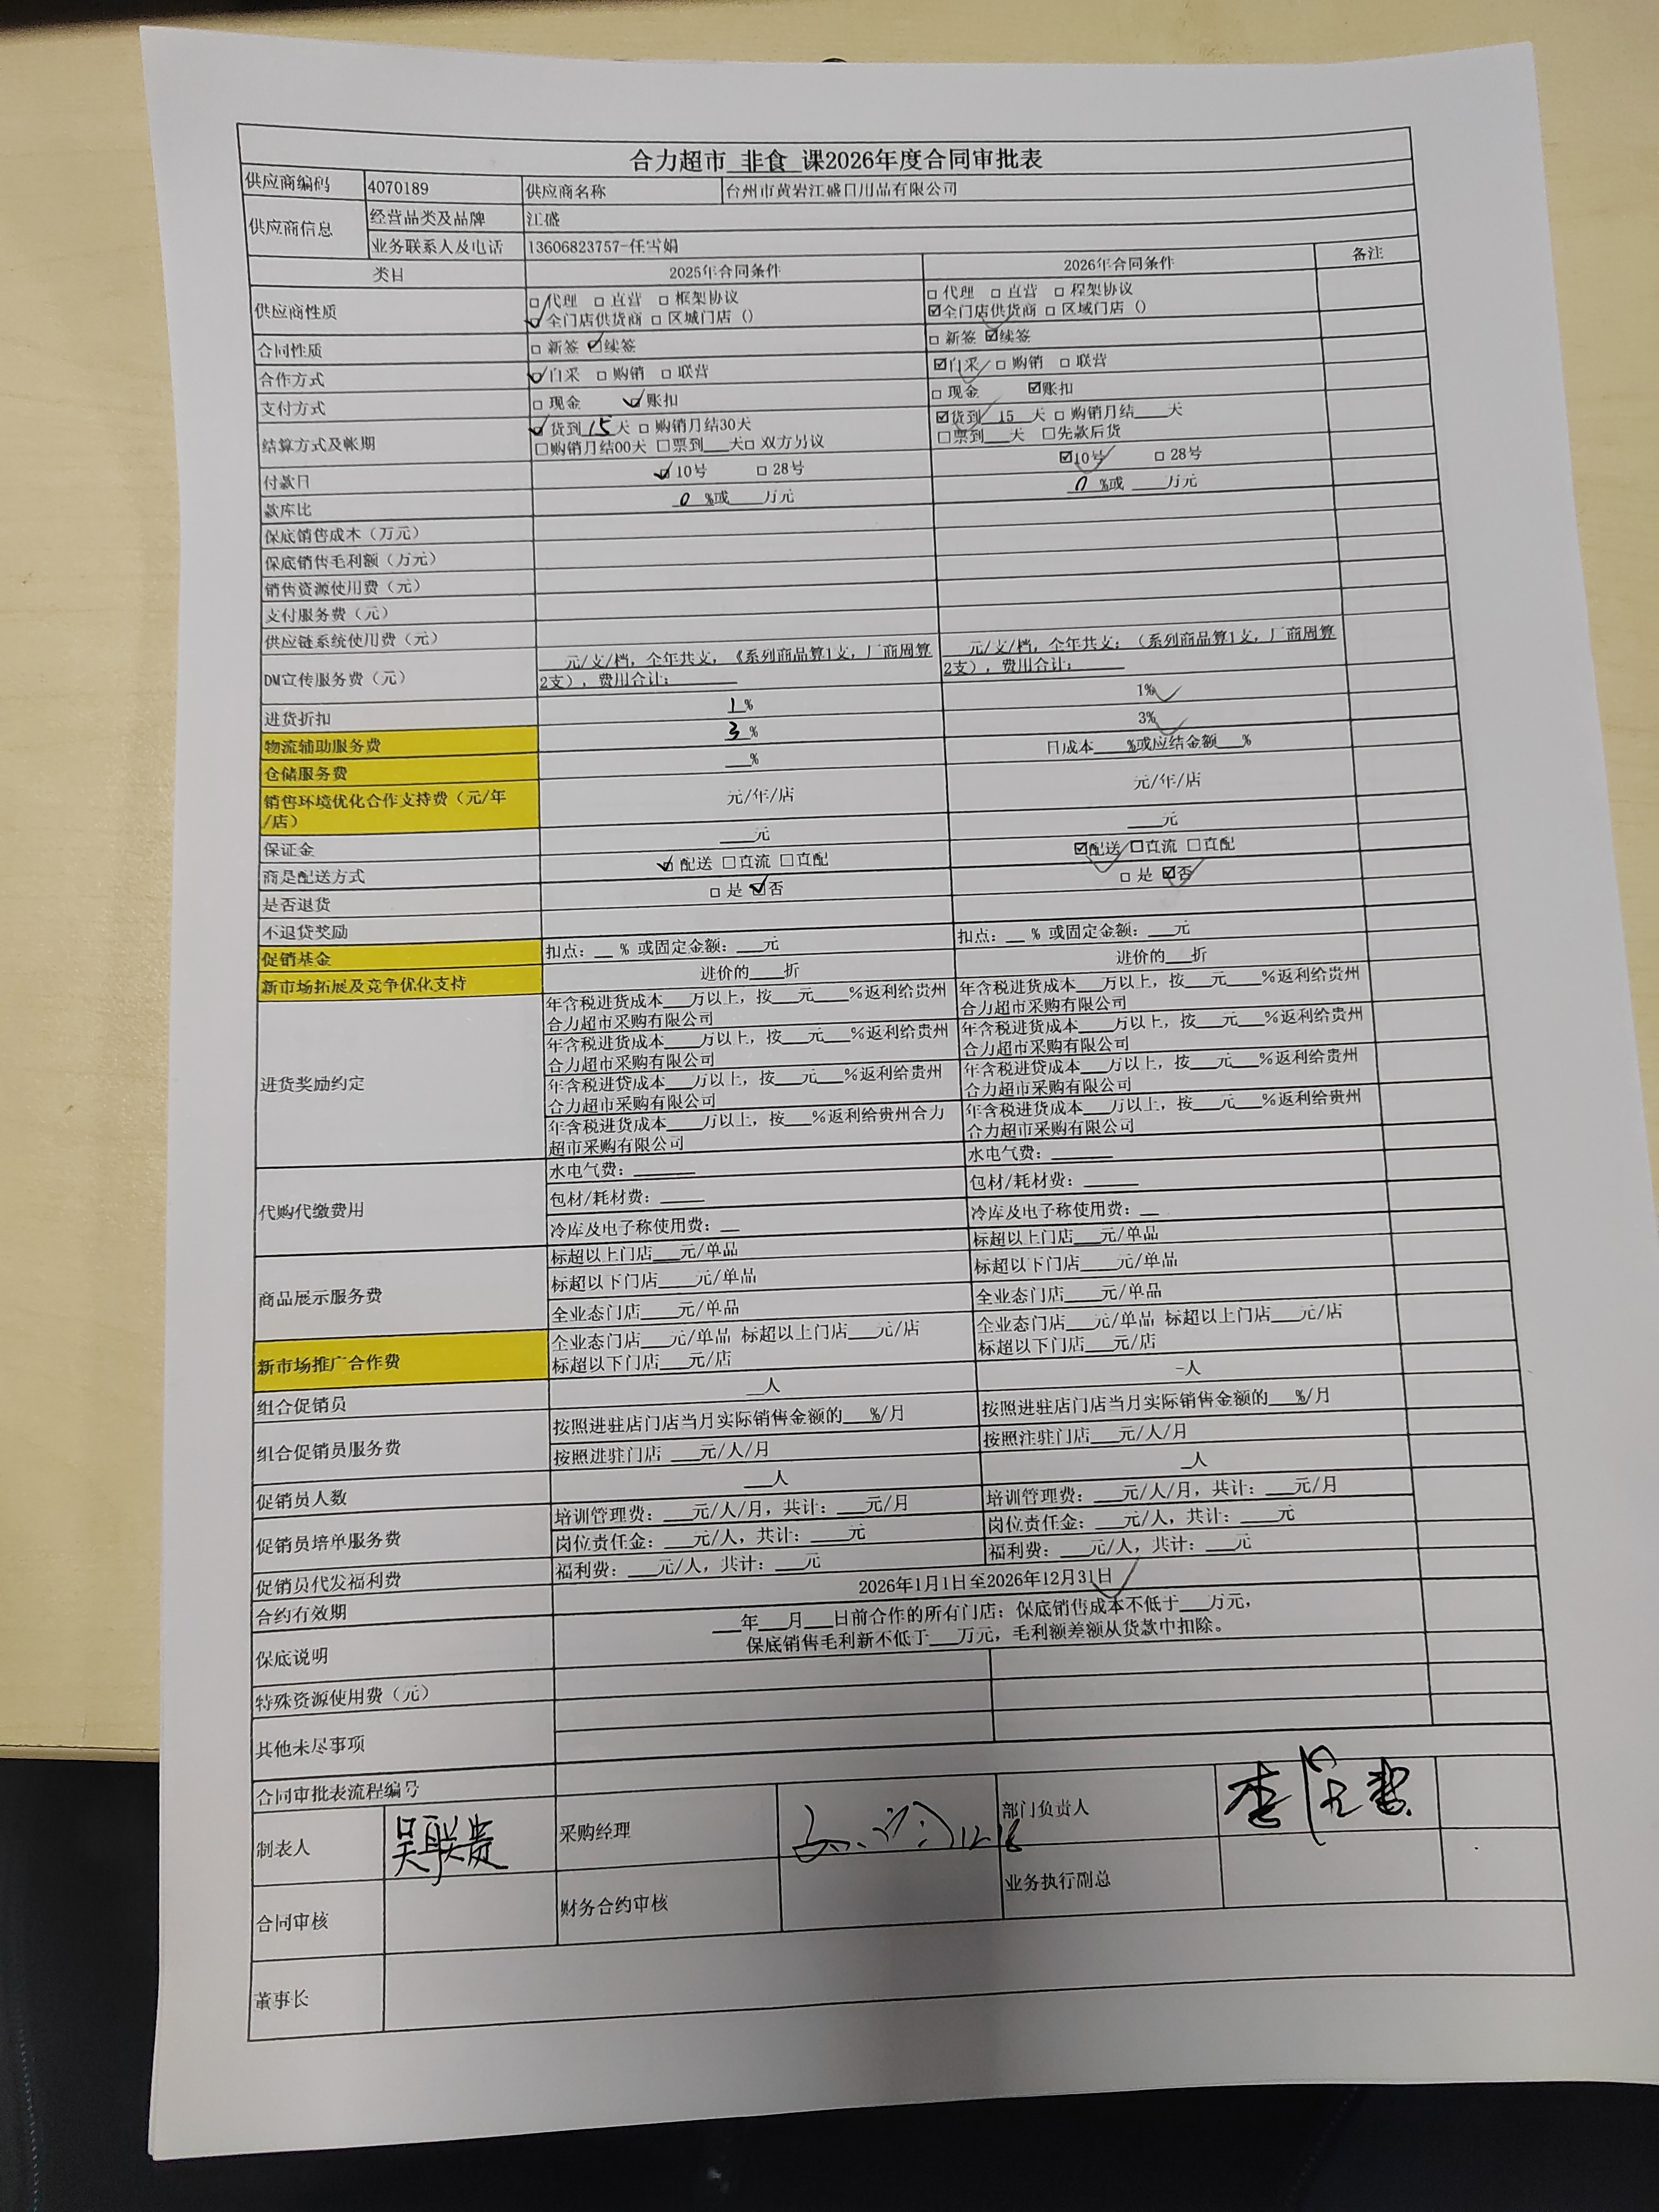 合力超市 非食 课2026年度合同审批表
供应商编码 4070189 供应商名称 台州市黄岩江盛日用品有限公司
供应商信息 经营品类及品牌 江盛
业务联系人及电话 13606823757-任雪娟
类目 2025年合同条件 2026年合同条件 备注
供应商性质 □代理 □直营 □框架协议 □代理 □直营 □程架协议
☑全门店供货商 □区城门店（） ☑全门店供货商 □区域门店（）
合同性质 □新签 ☑续签 □新签 ☑续签
合作方式 ☑自采 □购销 □联营 ☑自采 □购销 □联营
支付方式 □现金 ☑账扣 □现金 ☑账扣
结算方式及帐期 ☑货到 15 天 □购销月结30天 ☑货到 15 天 □购销月结___天
□购销月结00天 □票到___天□双方另议 □票到___天 □先款后货
付款日 ☑10号 □28号 ☑10号 □28号
款库比 0 %或___万元 0 %或___万元
保底销售成本（万元）
保底销售毛利额（万元）
销售资源使用费（元）
支付服务费（元）
供应链系统使用费（元）
DM宣传服务费（元） ___元/支/档，全年共支，《系列商品算1支，厂商周算 ___元/支/档，全年共支；（系列商品算1支，厂商周算
2支），费用合计：______ 2支），费用合计：______
进货折扣 1 % 1%
物流辅助服务费 3 % 3%
仓储服务费 ___% 日成本___%或应结金额___%
销售环境优化合作支持费（元/年 元/年/店 元/年/店
/店）
保证金 ___元 ___元
商是配送方式 ☑配送 □直流 □直配 ☑配送 □直流 □直配
是否退货 □是 ☑否 □是 ☑否
不退货奖励
促销基金 扣点：__ % 或固定金额：___元 扣点：__ % 或固定金额：___元
新市场拓展及竞争优化支持 进价的___折 进价的___折
进货奖励约定 年含税进货成本___万以上，按___元___%返利给贵州 年含税进货成本___万以上，按___元___%返利给贵州
合力超市采购有限公司 合力超市采购有限公司
年含税进货成本___万以上，按___元___%返利给贵州 年含税进货成本___万以上，按___元___%返利给贵州
合力超市采购有限公司 合力超市采购有限公司
年含税进货成本___万以上，按___元___%返利给贵州 年含税进货成本___万以上，按___元___%返利给贵州
合力超市采购有限公司 合力超市采购有限公司
年含税进货成本___万以上，按___%返利给贵州合力 年含税进货成本___万以上，按___元___%返利给贵州
超市采购有限公司 合力超市采购有限公司
代购代缴费用 水电气费：______ 水电气费：______
包材/耗材费：____ 包材/耗材费：____
冷库及电子称使用费：__ 冷库及电子称使用费：__
商品展示服务费 标超以上门店___元/单品 标超以上门店___元/单品
标超以下门店___元/单品 标超以下门店___元/单品
全业态门店___元/单品 全业态门店___元/单品
新市场推广合作费 全业态门店___元/单品 标超以上门店___元/店 全业态门店___元/单品 标超以上门店___元/店
标超以下门店___元/店 标超以下门店___元/店
组合促销员 __人 -人
组合促销员服务费 按照进驻店门店当月实际销售金额的___%/月 按照进驻店门店当月实际销售金额的___%/月
按照进驻门店 ___元/人/月 按照注驻门店___元/人/月
促销员人数 ___人 __人
促销员培单服务费 培训管理费：___元/人/月，共计：___元/月 培训管理费：___元/人/月，共计：___元/月
岗位责任金：___元/人，共计：___元 岗位责任金：___元/人，共计：___元
促销员代发福利费 福利费：___元/人，共计：___元 福利费：___元/人，共计：___元
合约有效期 2026年1月1日至2026年12月31日
保底说明 ___年___月___日前合作的所有门店：保底销售成本不低于___万元，
保底销售毛利新不低于___万元，毛利额差额从货款中扣除。
特殊资源使用费（元）
其他未尽事项
合同审批表流程编号
制表人 吴联贵 采购经理 部门负责人
合同审核 财务合约审核 业务执行副总
董事长